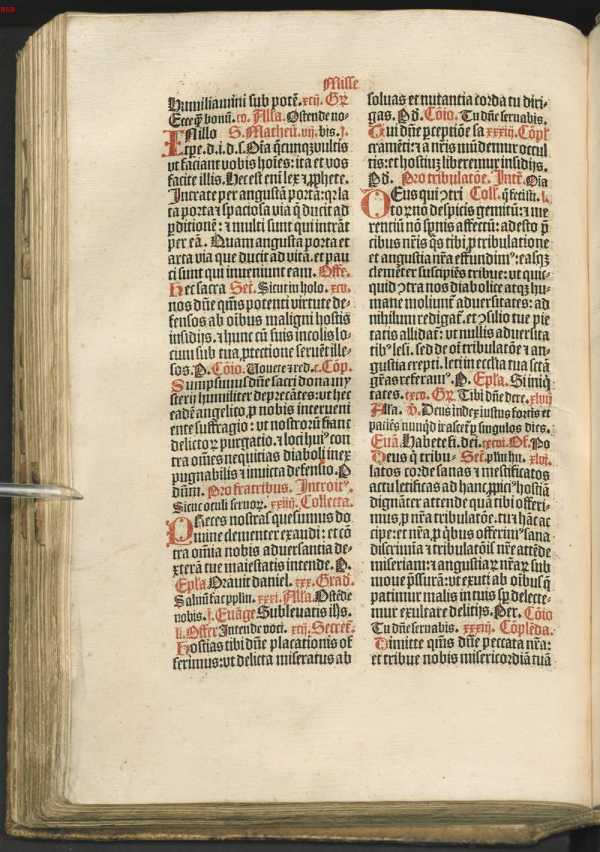 Misse
Humiliamini sub potē. xcij. Gr̄
Ecce q̄ bonū. co. Alla. Ostende no-
IN illo S. Matheū. vij. bis. j.
tpe. d. i. d. s. Oīa q̄cunqꝫ vultis
vt faciant vobis hoīes: ita et vos
facite illis. Hec est eni lex ⁊ ꝓphete.
Intrate per angustā portā: qꝛ la
ta porta ⁊ spaciosa via q̄ ducit ad
ꝑditionē: ⁊ multi sunt qui intrāt
per eā. Quam angusta porta et
arta via que ducit ad vitā. et pau
ci sunt qui inueniunt eam. Offe.
Hec sacra Set. Sicut in holo. xcv.
nos dn̄e qm̄s potenti virtute de-
fensos ab oībus maligni hostis
insidijs. ⁊ hunc cū suis incolis lo-
cum sub tua ꝓtectione seruēt ille-
sos. P. Cōio. Vouete ⁊ red. c. Cōp.
Sumpsimus dn̄e sacri dona my
sterij humiliter deprecātes: vt hec
eadē angelico, p nobis interueni
ente suffragio: vt nostroꝝ fiant
delictoꝝ purgatio. ⁊ loci huiꝰ con
tra oēs nequitias diaboli inex
pugnabilis ⁊ inuicta defensio. P
dn̄m. Pro fratribus. Introitꝰ.
Sicut oculi seruoꝝ. xxiiij. Collecta.
PReces nostras quesumus do
mine clementer exaudi: et cō
tra om̄ia nobis aduersantia de-
xterā tue maiestatis intende. P.
Ep̄la Orauit daniel. xxx. Grad.
Saluū fac pplm. xxxi. Alla. Ostēde
nobis. j. Euāge Subleuatis ihs.
lj. Offer Intende voci. xcij. Secret.
Hostias tibi dn̄e placationis of
ferimus: vt delicta miseratus ab
soluas et nutantia corda tu diri-
gas. P d. Cōio. Tu dn̄e seruabis.
Qui dn̄e ꝑceptiōe sa xxxiij. Cōpl
cramēti: ⁊ a nr̄is mūdemur occul
tis: et hostiū liberemur insidijs.
P d. Pro tribulatōe. Int. Oīa
DEus qui ꝯtri Coll. q̄ fecisti. l.
toꝝ nō despicis gemitū: ⁊ me
rentiū nō spnis affectū: adesto p̄
cibus nr̄is q̄s tibi ꝓ tribulatione
et angustia nr̄a effundimꝰ: easqꝫ
clemēter suscipiēs tribue: vt quic-
quid ꝯtra nos diabolice atqꝫ hu-
mane moliunt aduersitates: ad
nihilum redigat. et ꝯsilio tue pie
tatis allidat: vt nullis aduersita
tibꝰ lesi. sed de oī tribulatōe ⁊ an-
gustia erepti. leti in ecclīa tua sctā
gr̄as referamꝰ. P. Ep̄la. Si iniq̄
tates. cxco. Gr̄. Tibi dn̄e dere. xlvij
Alla. V. Deus iudex iustus fortis et
paciēs nunqͥd irascet̄ ꝑ singulos dies.
Euā. Habete fi. dei. xcvi. Of. Po
Deus q̄ tribu- Set. plm hu. xlvi.
latos corde sanas ⁊ mestificatos
actu letificas ad hanc ꝓpiciꝰ hostiā
dignāter attende quā tibi offeri-
mus, p nr̄a tribulatōe. tu ⁊ hāc ac
cipe: et nr̄a ꝓ qͥbus offerimꝰ sana
discrimia ⁊ tribulatōis nr̄e attēde
miseriam: ⁊ angustiaꝝ nr̄aꝝ sub
moue pssurā: vt exuti ab oībus q̄
patimur malis in tuis sp delecte-
mur exultare delitijs. Per. Cōio
Tu dn̄e seruabis. xxxiij. Cōplēda.
Dimitte qm̄s dn̄e peccata nr̄a:
et tribue nobis misericordiā tuā